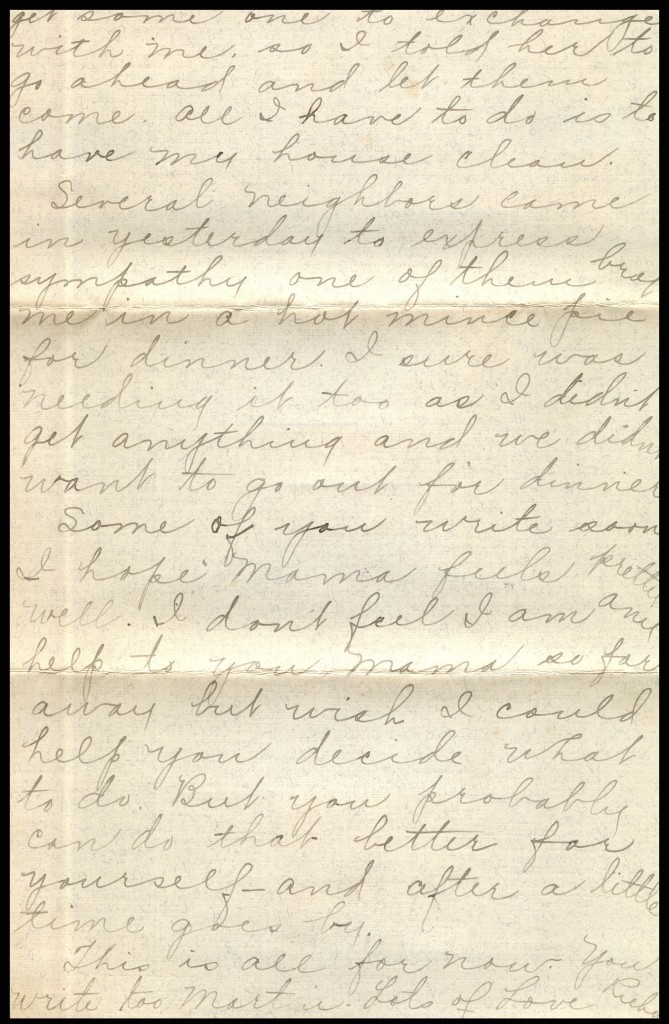 get some one to exchange
with me, so I told her to
go ahead and let them
come. All I have to do is to
have my house clean.
Several neighbors came
in yesterday to express
sympathy one of them
me in a hot mince pie
for dinner. I sure was
needing it too as I didn't
get anything and we didn't
want to go out for dinner
Some of you write soon
I hope Mama feels pretty
well. I dont feel I am any
help to you Mama so far
away but wish I could
help you decide what
to do. But you probably
can do that better for
yourself - and after a little
time goes by.
This is all for now. You
write too Mart . Lots of Love